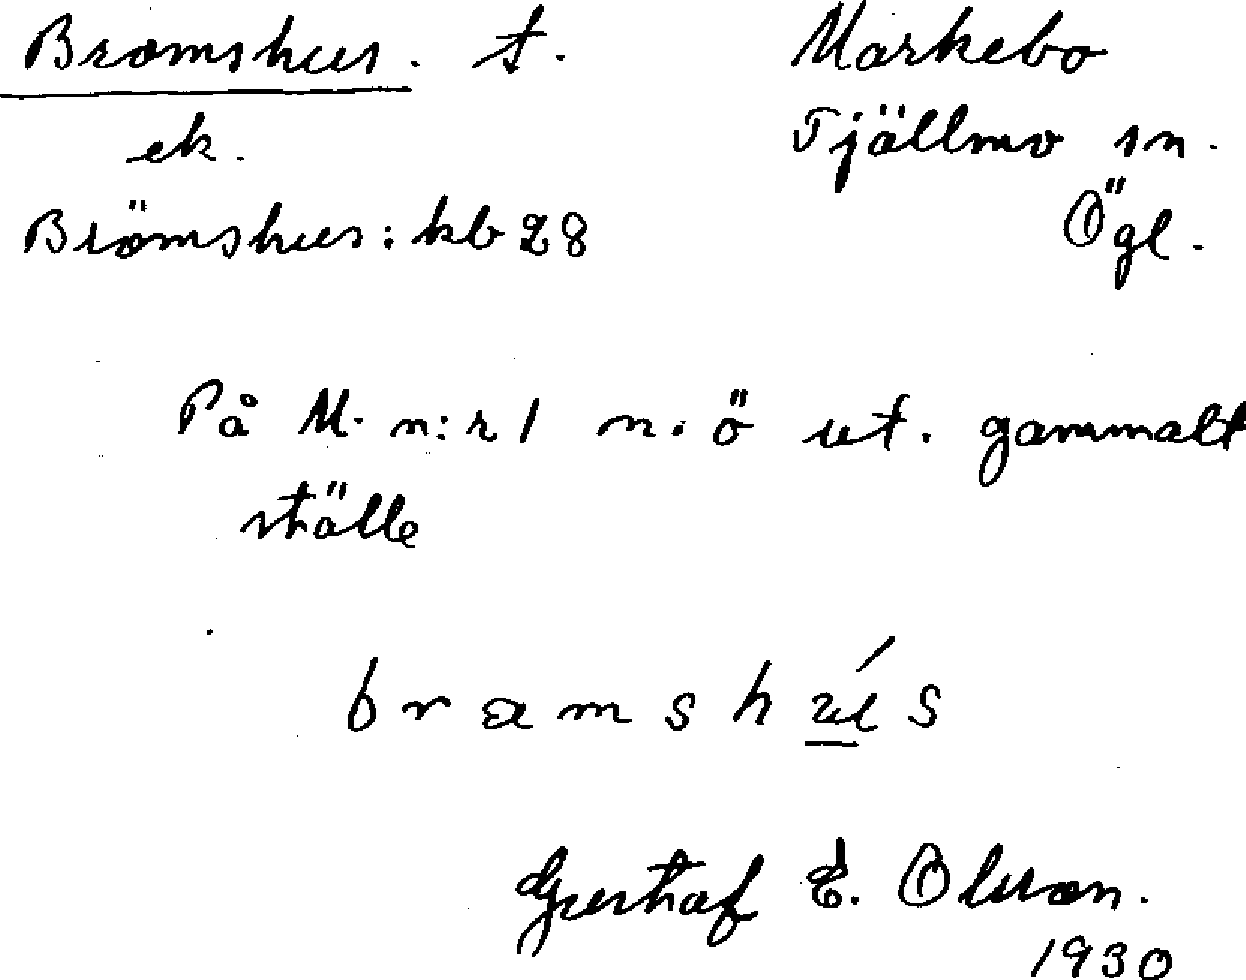 Bromshus. t. Markebo
ek. Tjällmo sn.
Brömshus: kb 28 Ögl.
På M. n:r 1 n.ö ut. gammalt
ställe
bramshú̲s
Gustaf E. Olsson.
1930